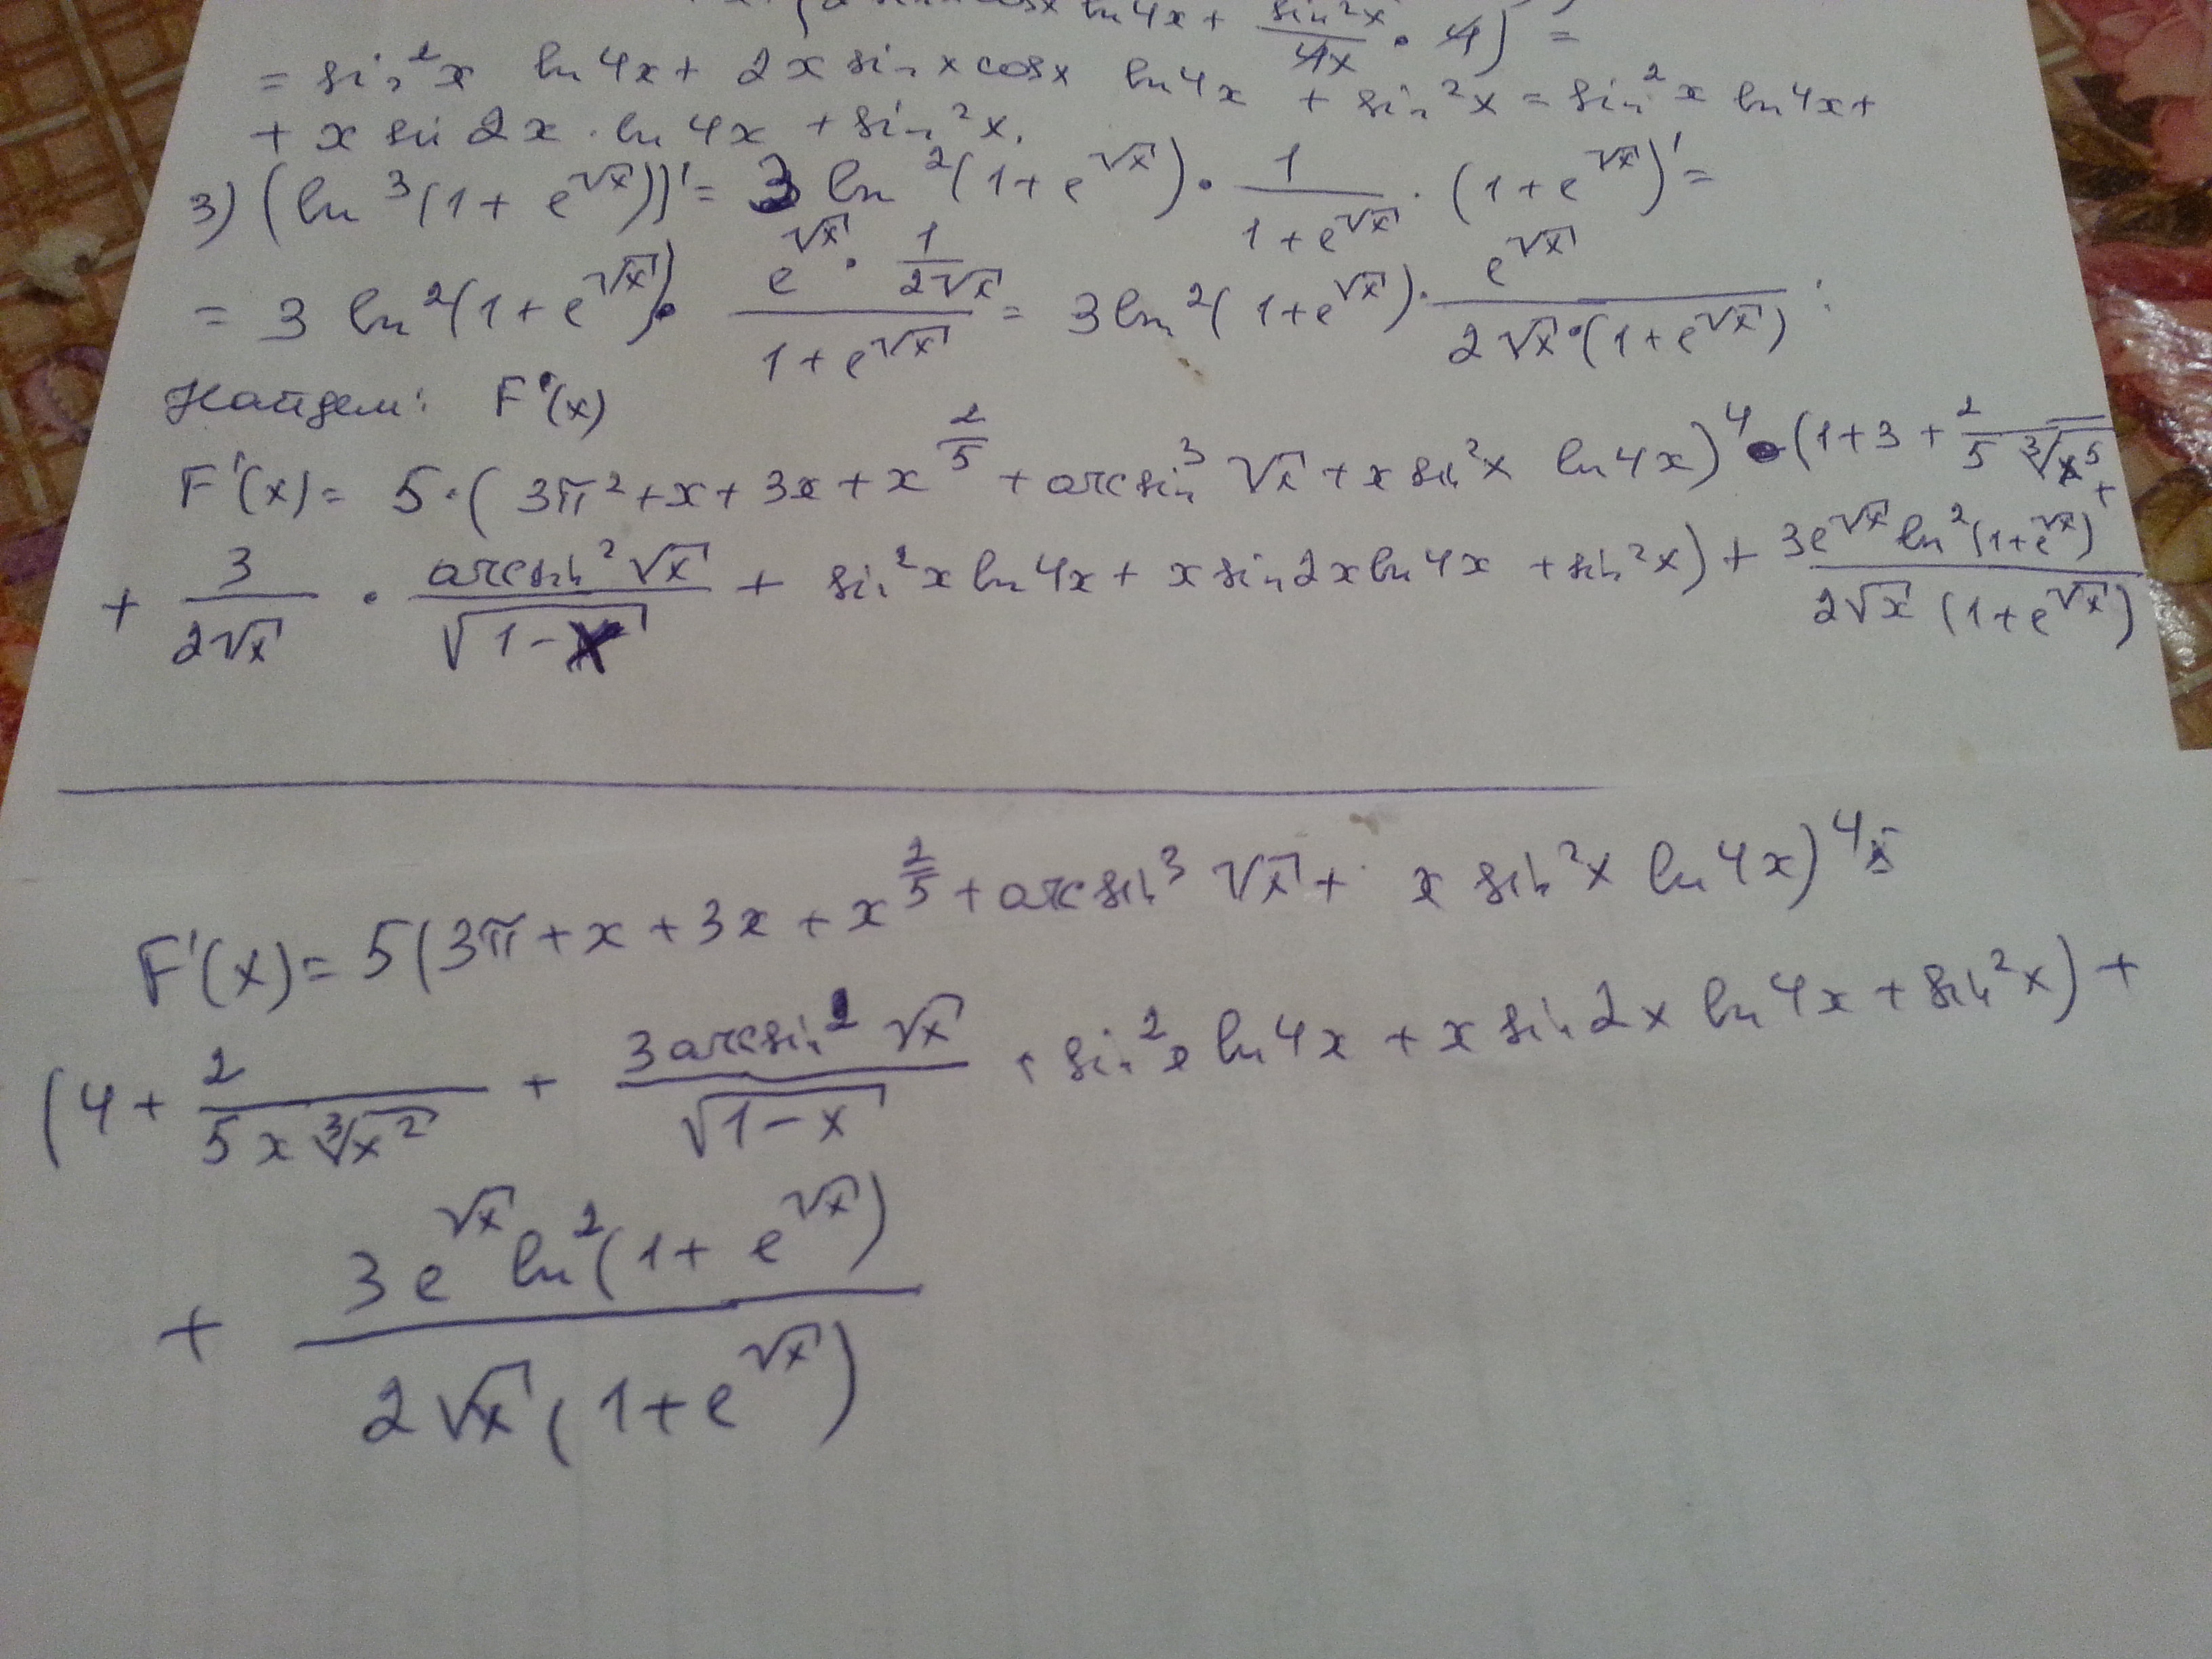 ln4x + sin²x/4x · 4) =
= sin²x ln4x + 2x sinx cosx ln4x + sin²x = sin²x ln4x +
+ x sin2x · ln4x + sin²x.
3) (ln³(1+e^√x))' = 3 ln²(1+e^√x) · 1/(1+e^√x) · (1+e^√x)' =
= 3 ln²(1+e^√x) · (e^√x · 1/(2√x))/(1+e^√x) = 3ln²(1+e^√x) · e^√x/(2√x·(1+e^√x)) ;
Найдем: F'(x)
F'(x) = 5·(3π²+x+3x+x^(2/5) + arcsin³√x + x sin²x ln4x)⁴ · (1+3+ 2/(5 ∛x⁵) +
+ 3/(2√x) · arcsin²√x/√(1-x) + sin²x ln4x + x sin2x ln4x + sin²x) + 3e^√x ln²(1+e^√x)/(2√x (1+e^√x))
F'(x) = 5(3π+x+3x+x^(2/5) + arcsin³√x + x sin²x ln4x)⁴
(4 + 2/(5x∛x²) + 3arcsin²√x/√(1-x) + sin²x ln4x + x sin2x ln4x + sin²x) +
+ 3e^√x ln²(1+e^√x)/(2√x(1+e^√x))